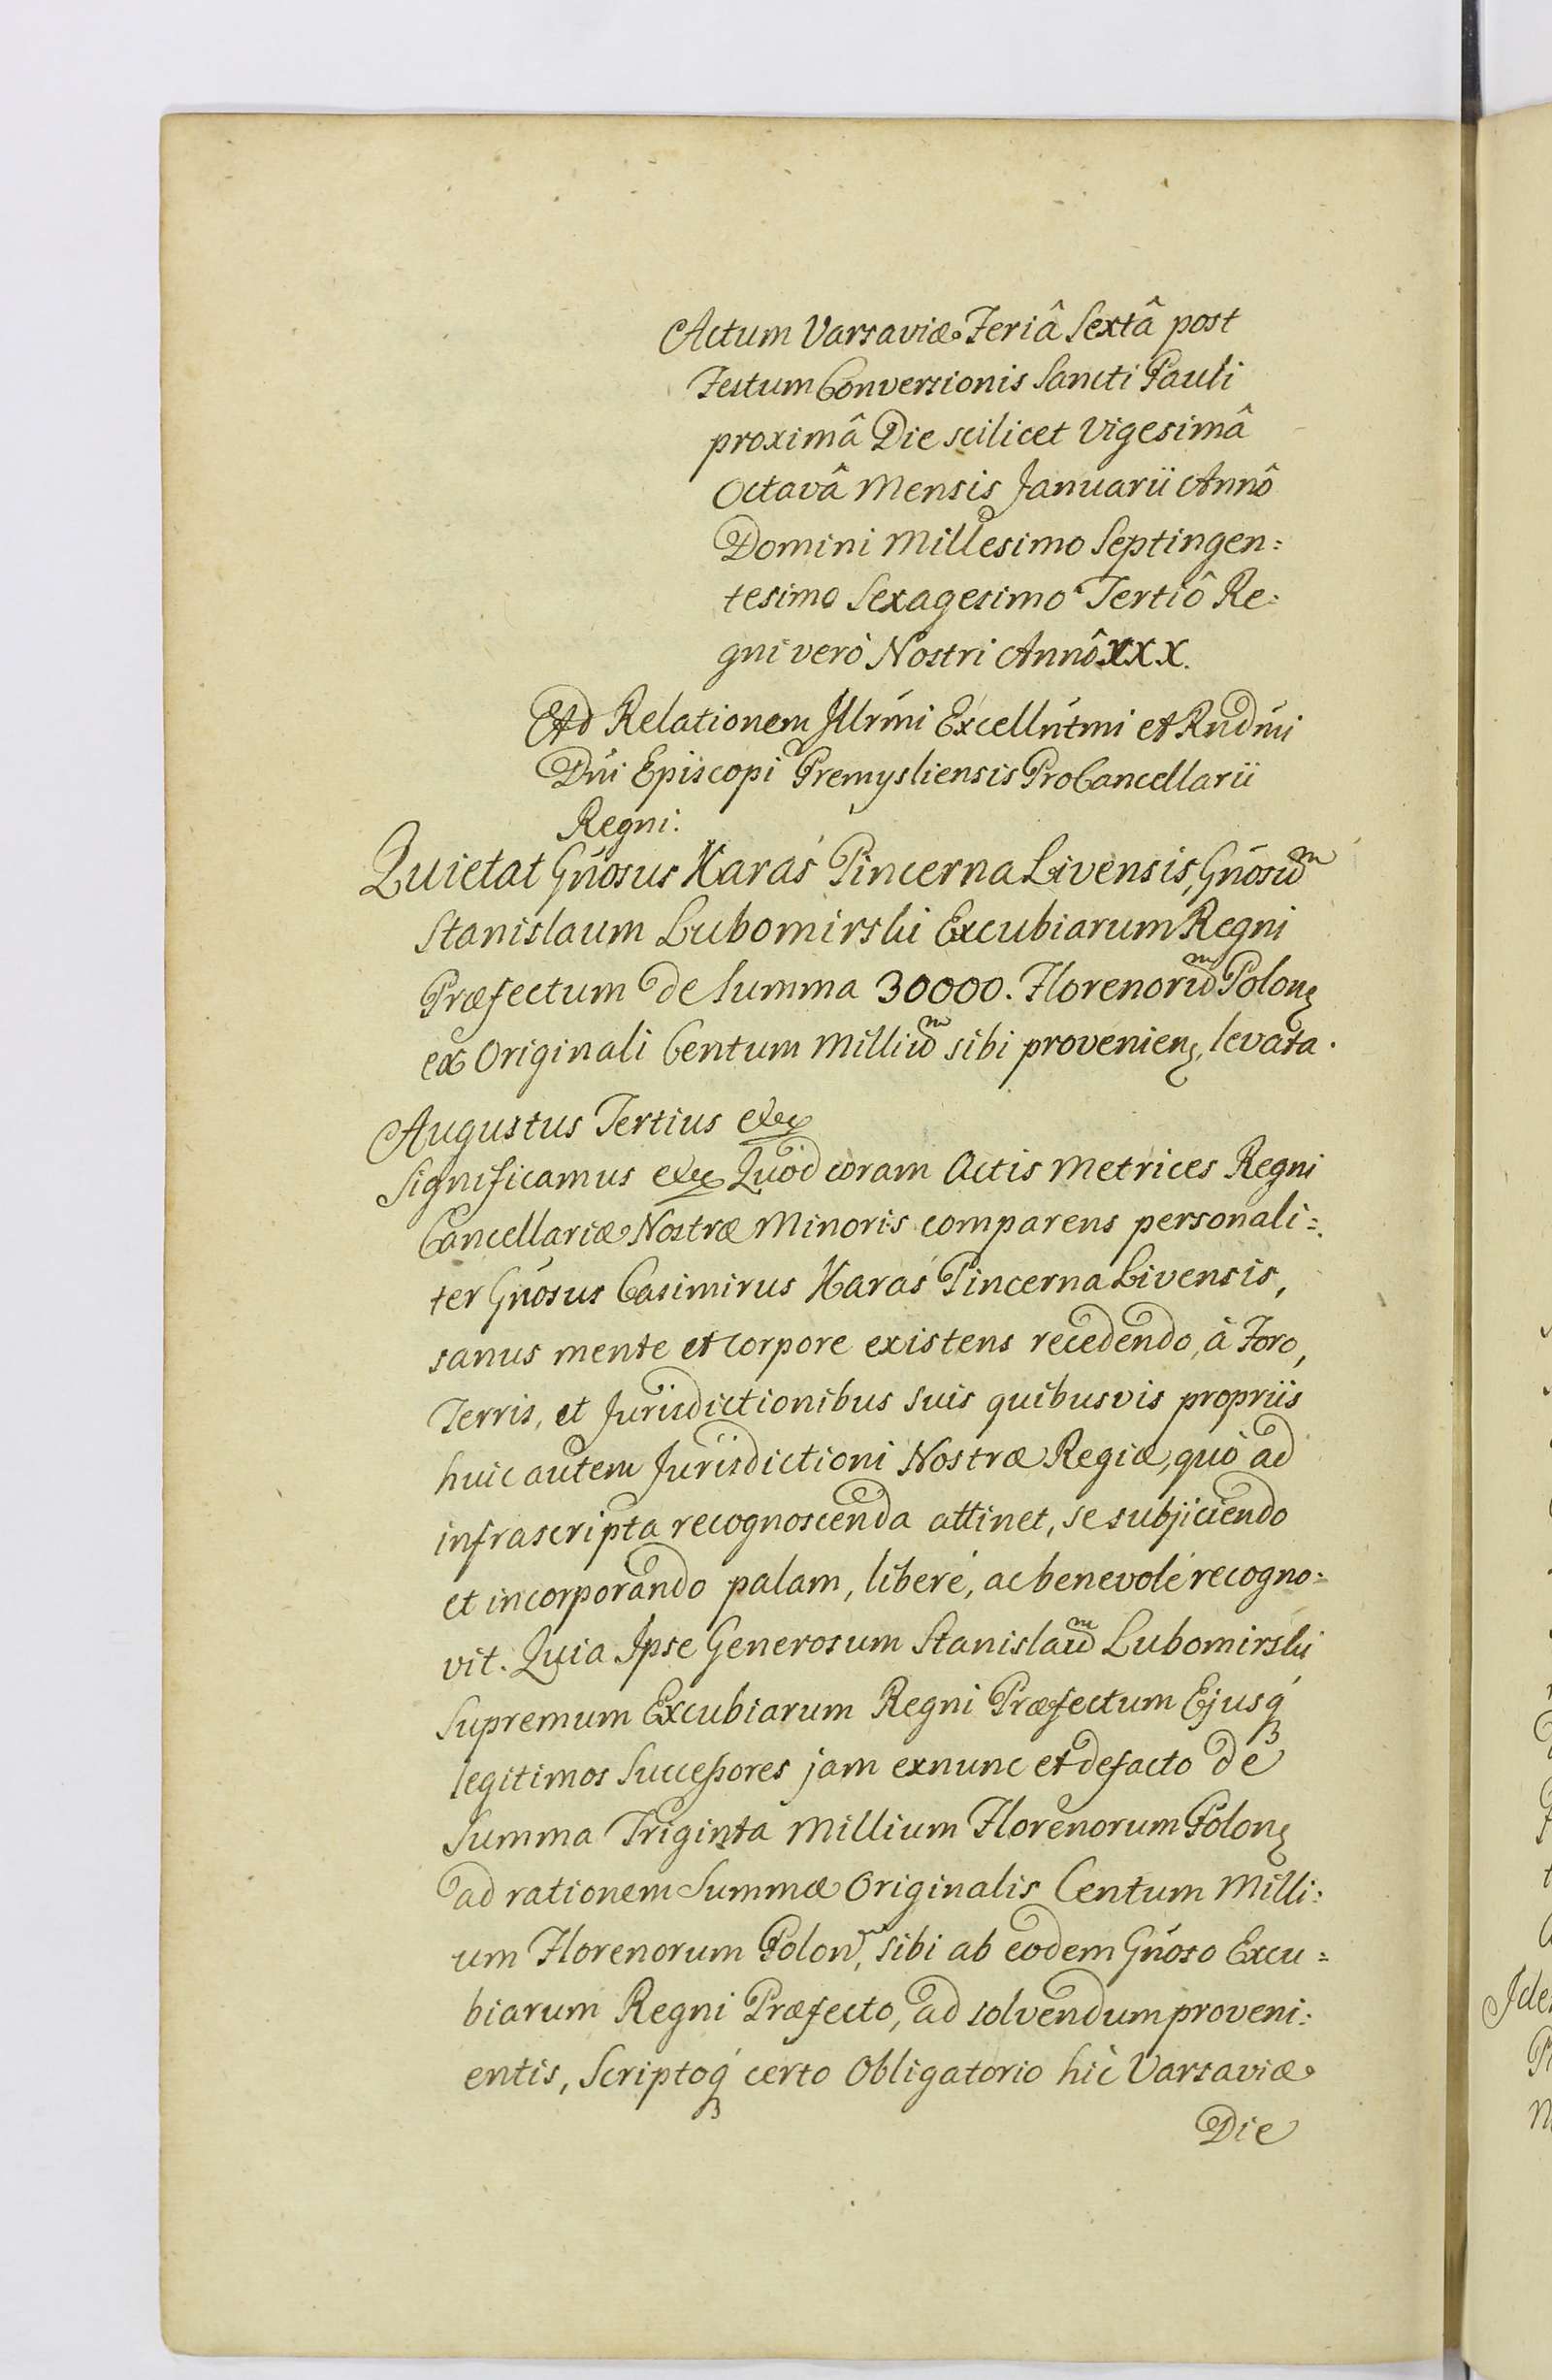 Actum Varsaviæ Feriâ Sextâ post
Festum Conversionis Sancti Pauli
proximâ Die scilicet Vigesimâ
Octavâ Mensis Januarii Annô
Domini Millesimo Septingen=
tesimo Sexagesimo Tertiô Re=
gni verò Nostri Annô XXX.
Ad Relationem Illrmi Excellntmi et Rndmi
Dni Episcopi Premysliensis ProCancellarii
Regni.
Quietat Gnosus Karaś Pincerna Livensis, Gnosum
Stanislaum Lubomirski Excubiarum Regni
Præfectum de Summa 30000. Florenorum Polon
ex Originali Centum Millium sibi provenien, levata.
Augustus Tertius etc
Significamus etc Quod coram Actis Metrices Regni
Cancellariæ Nostræ Minoris comparens personali=
ter Gnosus Casimirus Karaś Pincerna Livensis,
sanus mente et corpore existens recedendo, à Foro,
Terris, et Jurisdictionibus suis quibusvis propriis
huic autem Jurisdictioni Nostræ Regiæ, quò ad
infrascripta recognoscenda attinet, se subjiciendo
et incorporando palam, liberé, ac benevolé recogno=
vit. Quia Ipse Generosum Stanislaum Lubomirski
Supremum Excubiarum Regni Præfectum Ejusq
legitimos Successores jam exnunc et defacto de
Summa Triginta Millium Florenorum Polon
ad rationem Summæ Originalis Centum Milli=
um Florenorum Polon, sibi ab eodem Gnoso Excu=
biarum Regni Præfecto, ad solvendum proveni=
entis, Scriptoq certo Obligatorio hîc Varsaviæ
Die